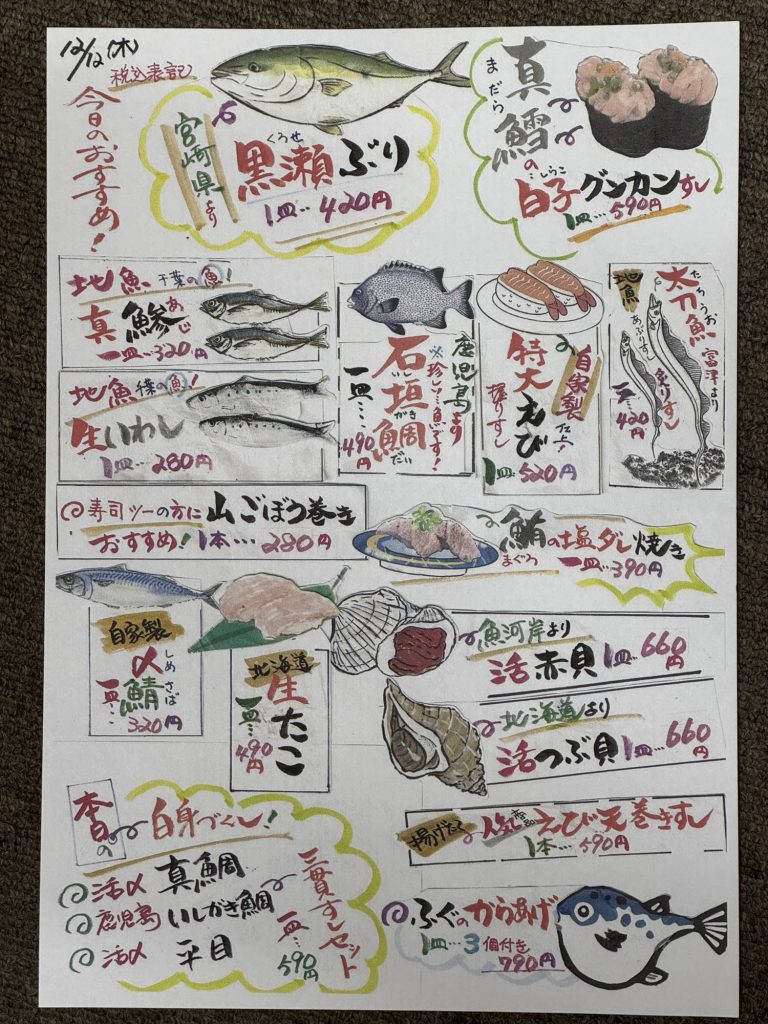 12/12(木)
税込表記
今日のおすすめ！
宮崎県より
くろせ
黒瀬ぶり
1皿…420円
まだら
真鱈の
しらこ
白子グンカンすし
1皿…590円
地魚 千葉の魚！
真鯵
あじ
一皿…320円
地魚 千葉の魚！
生いわし
1皿…280円
鹿児島より
※珍しい…魚です！
石垣鯛
いしがきだい
一皿…490円
自家製仕上！
特大えび
握りすし
1皿…520円
地魚
たちうお
太刀魚
富津より
あぶりすし
炙りすし
一皿…420円
寿司ツーの方に
おすすめ！
山ごぼう巻き
1本…280円
鮪の塩ダレ焼き
まぐろ
一皿…390円
自家製
しめさば
〆鯖
一皿…320円
北海道
生たこ
一皿…490円
魚河岸より
活赤貝 1皿…660円
北海道より
活つぶ貝 1皿…660円
本日の
白身づくし！
活〆 真鯛
鹿児島 いしがき鯛
活〆 平目
三貫すしセット
一皿…590円
揚げたて
人気
えび天巻きすし
1本…590円
ふぐのからあげ
1皿…3個付き
790円